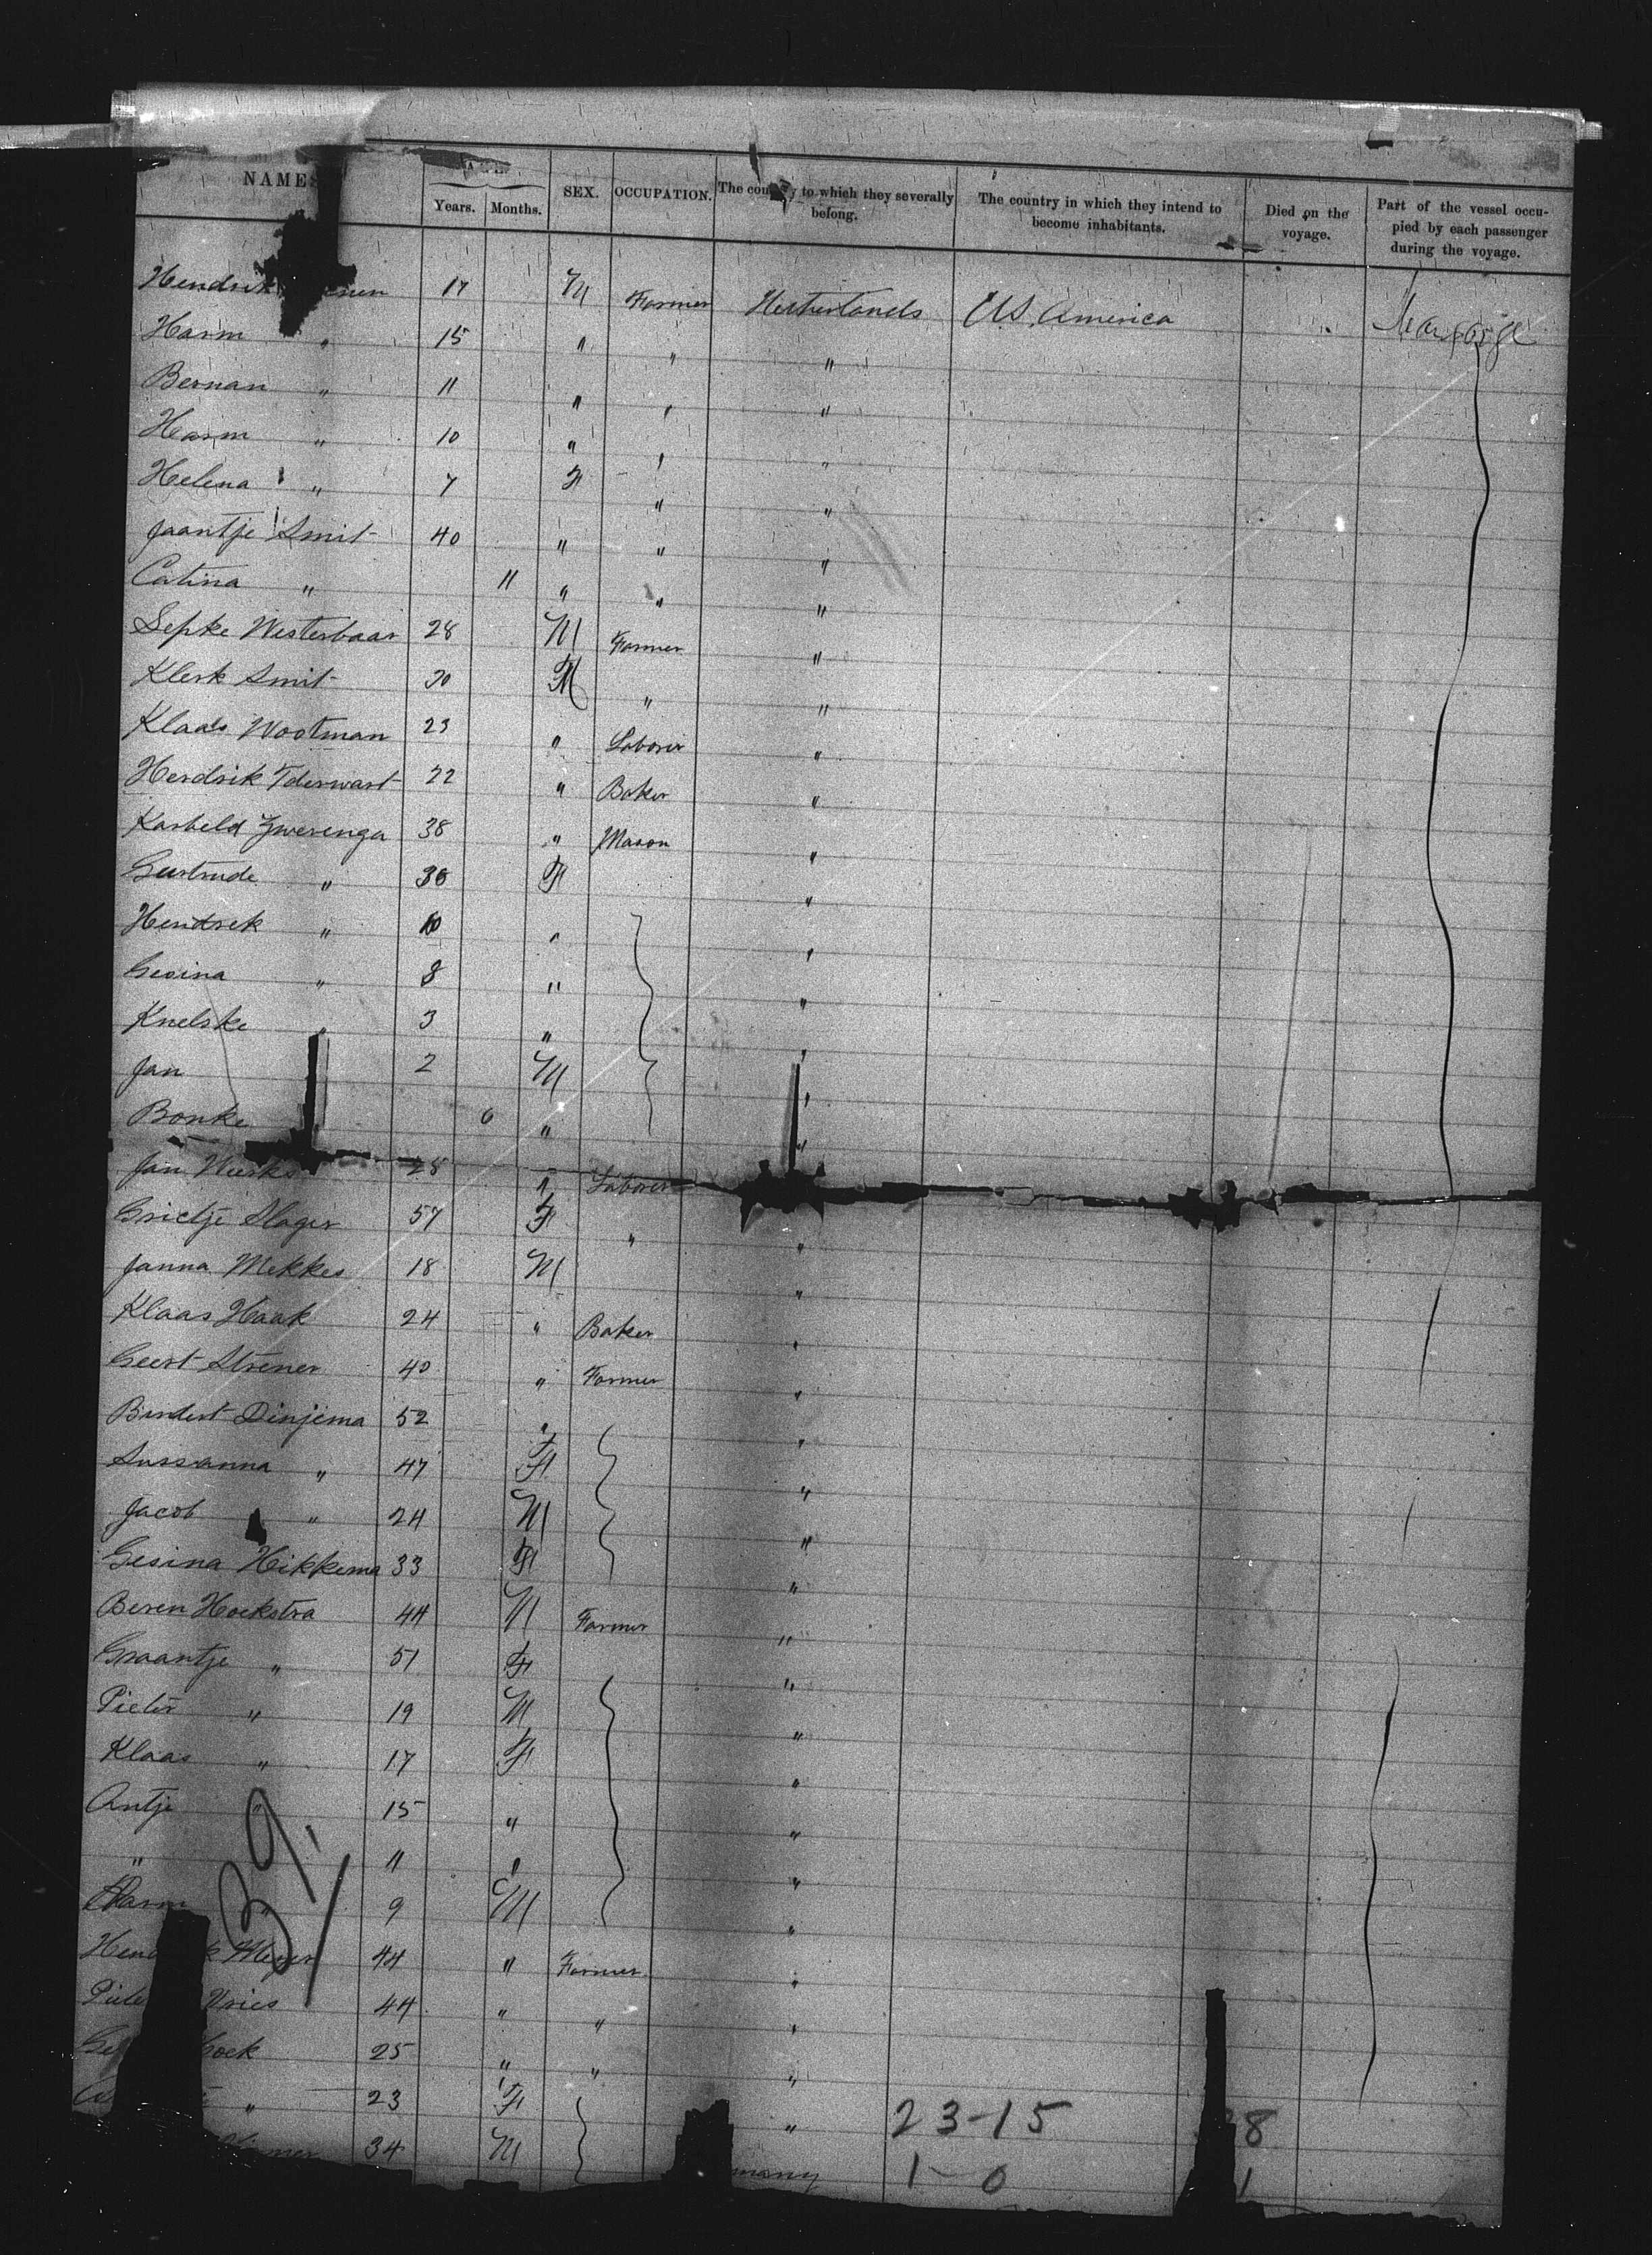 NAMES
Years. Months. SEX. OCCUPATION. The country to which they severally belong. The country in which they intend to become inhabitants. Died on the voyage. Part of the vessel occupied by each passenger during the voyage.
Hendrik 17 M Farmer Netherlands U.S. America
Harm " 15 " " "
Bernan " 11 " " "
Harm " 10 " " "
Helena " 7 F " "
Jaantje Smit 40 " " "
Catina " 11 " " "
Sepke Westerbaar 28 M Farmer "
Klerk Smit 30 M " "
Klaas Wootman 23 " Laborer "
Hendrik 22 " Baker "
Karbeld Zwerenga 38 " Mason "
Gertrude " 38 F "
Hendrek " 10 " "
Gesina " 8 " "
Knelske " 3 " "
Jan 2 M "
Bonke 6 " "
Jan 28 " Laborer
Grietje Slager 57 F " "
Janna Mekkes 18 M "
Klaas Haak 24 " Baker "
Geert Strener 40 " Farmer "
Bindert Dinjema 52 " "
Sussanna " 47 F "
Jacob " 24 M "
Gesina Hikkema 33 F "
Beren Hoekstra 44 M Farmer "
Graantje " 51 F "
Pieter " 19 M "
Klaas " 17 F "
Antje " 15 " "
" 11 " "
Harm " 9 M "
Meyer 44 " Farmer "
Vries 44 " " "
25 " " "
" 23 F " 23-15 8
34 M many 1-0 1
39,